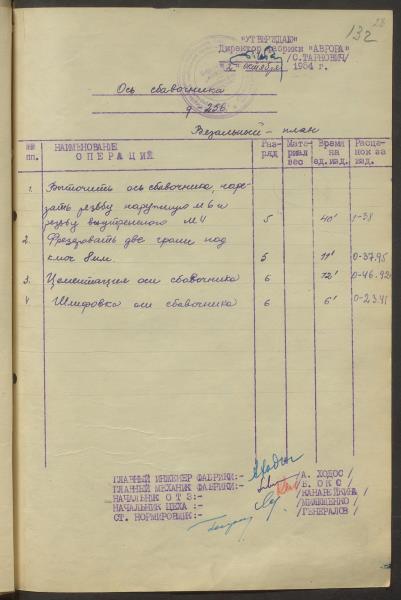 28
132
"УТВЕРЖДАЮ"
Директор фабрики "АВРОРА"
/С.ТАРНОВИЧ/
"2" октября 1954 г.
Ось сбавочника
9-256
Везальный - план
№№ пп. НАИМЕНОВАНИЕ ОПЕРАЦИЙ Раз-ряд Мате-риал вес Время на ед.изд. Расце-нок за изд.
1. Выточить ось сбавочника, наре-
зать резьбу наружную М6 и
резьбу внутреннюю М4 5 40' 1-38
2. Фрезеровать две грани под
ключ 8мм. 5 11' 0-37.95
3. Цементация оси сбавочника 6 12' 0-46.92
4 Шлифовка оси сбавочника 6 6' 0-23.41
ГЛАВНЫЙ ИНЖЕНЕР ФАБРИКИ:- /А. ХОДОС/
ГЛАВНЫЙ МЕХАНИК ФАБРИКИ:- /Б. ОКС/
НАЧАЛЬНИК ОТЗ:- /КАНАВЕЙКИНА/
НАЧАЛЬНИК ЦЕХА:- /МИЛЮШЕНКО/
СТ. НОРМИРОВЩИК:- /ГЕНЕРАЛОВ/